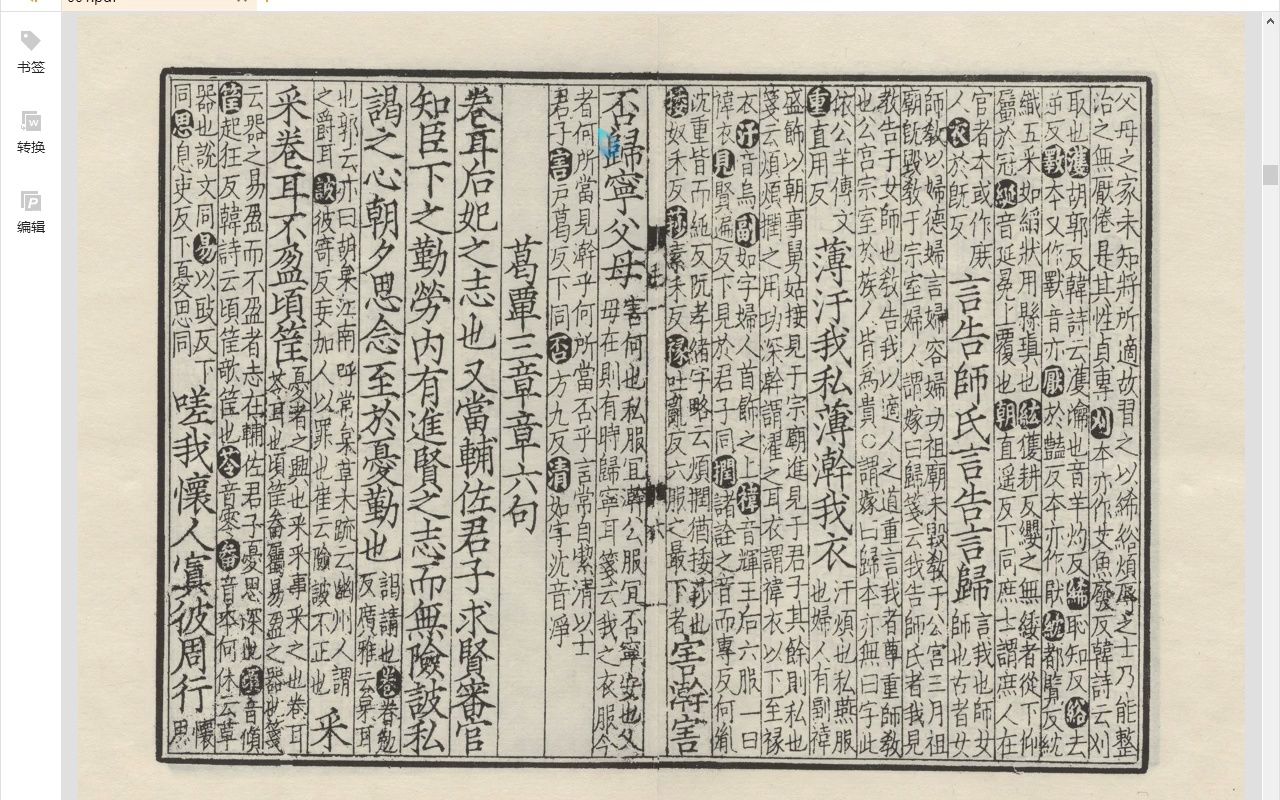 书签
转换
编辑
父母之家未知將所適故習之以絺綌煩辱之士乃能整
治之無厭倦是其性貞專刈本亦作艾魚廢反韓詩云刈
取也濩胡郭反韓詩云濩瀹也音羊灼反絺恥知反綌去
逆反斁本又作斁音亦厭於豔反本亦作猒紞都覽反
織五采如絛狀用縣瑱也紘獲耕反纓之無緌者從下仰
屬於冠綖音延冕上覆也朝直遥反下同庶士謂庶人在
官者本或作庶
人衣於旣反
言告師氏言告言歸
言我也師女
師也古者女
師敎以婦德婦言婦容婦功祖廟未毀敎于公宮三月祖
廟旣毀敎于宗室婦人謂嫁曰歸箋云我告師氏者我見
敎告于女師也敎告我以適人之道重言我者尊重師敎
也公宮宗室於族人皆爲貴○謂嫁曰歸本亦無曰字此
依公羊傳文
重直用反
薄汙我私薄澣我衣
汙煩也私燕服
也婦人有副褘
盛飾以朝事舅姑接見于宗廟進見于君子其餘則私也
箋云煩煩撋之用功深澣謂濯之耳衣謂褘衣以下至褖
衣汙音烏副如字婦人首飾之上褘音輝王后六服一曰
褘衣見賢遍反下見於君子同撋諸詮之音而專反何胤
沈重皆而純反阮孝緒字略云煩撋猶捼莏也
捼奴禾反莏素禾反褖吐亂反六服之最下者
害澣害
否歸寧父母
害何也私服宜澣公服宜否寧安也父
母在則有時歸寧耳箋云我之衣服今
者何所當見澣乎何所當否乎言常自絜清以士
君子害戸葛反下同否方九反清如字沈音淨
葛覃三章章六句
卷耳后妃之志也又當輔佐君子求賢審官
知臣下之勤勞内有進賢之志而無險詖私
謁之心朝夕思念至於憂勤也
謁請也卷卷勉
反廣雅云枲耳
也郭云亦曰胡枲江南呼常枲草木疏云幽州人謂
之爵耳詖彼寄反妄加人以罪也崔云險詖不正也
采
采卷耳不盈頃筐
憂者之興也采采事采之也卷耳
苓耳也頃筐畚屬易盈之器也箋
云器之易盈而不盈者志在輔佐君子憂思深也頃音傾
筐起狂反韓詩云頃筐欹筐也苓音零畚音本何休云草
器也說文同易以豉反下
同思息吏反下憂思同
嗟我懷人寘彼周行
懷
思